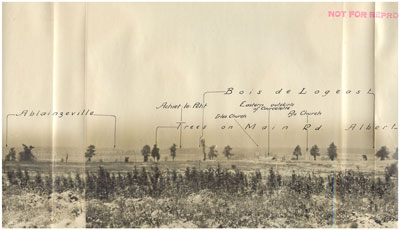 NOT FOR REPRO
Bois de Logeast
Ablaingeville
Achiet-le-Petit
Eastern outskirts
of Courcelette
Irles Church
Pys Church
Trees on Main Rd. Albert